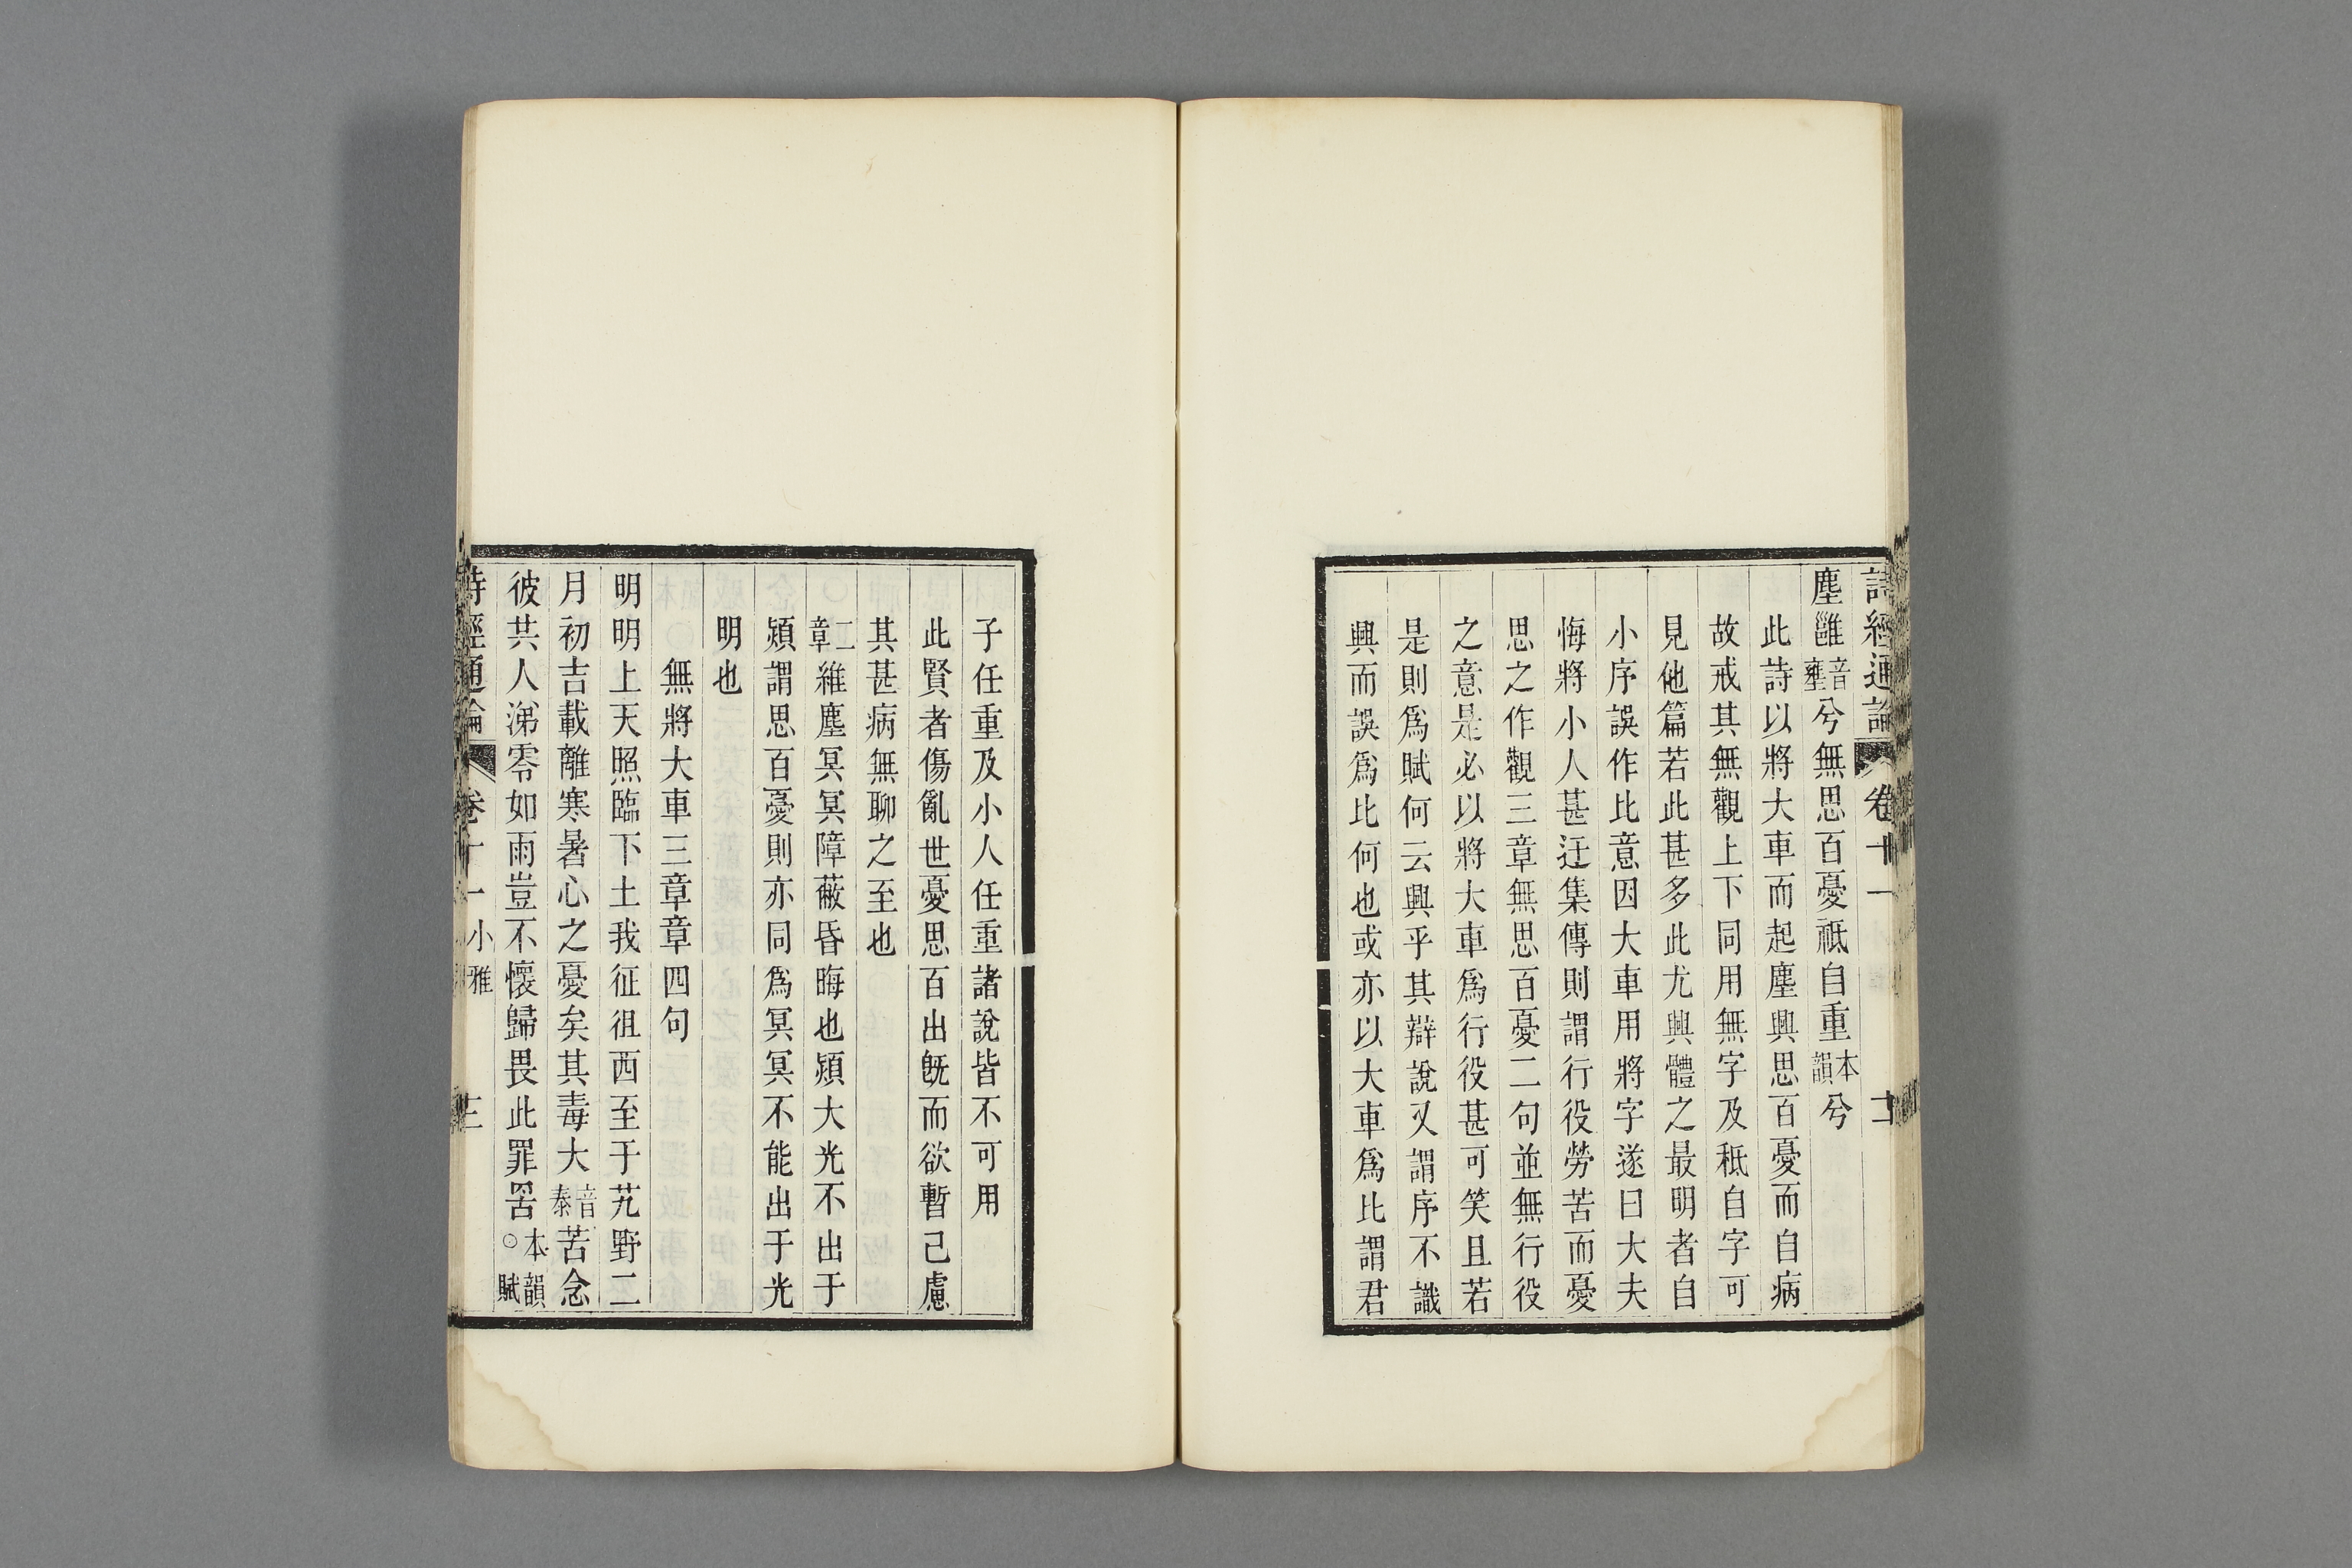 詩經通論 卷十一
塵雝音壅兮無思百憂祗自重本韻兮
此詩以將大車而起塵興思百憂而自病
故戒其無觀上下同用無字及秪自字可
見他篇若此甚多此尤興體之最明者自
小序誤作比意因大車用將字遂曰大夫
悔將小人甚迂集傳則謂行役勞苦而憂
思之作觀三章無思百憂二句並無行役
之意是必以將大車為行役甚可笑且若
是則爲賦何云興乎其辯說又謂序不識
興而誤爲比何也或亦以大車爲比謂君
子任重及小人任重諸說皆不可用
此賢者傷亂世憂思百出旣而欲暫己慮
其甚病無聊之至也
二章維塵冥冥障蔽昏晦也熲大光不出于
熲謂思百憂則亦同爲冥冥不能出于光
明也
無將大車三章章四句
明明上天照臨下土我征徂西至于艽野二
月初吉載離寒暑心之憂矣其毒大音泰苦念
彼共人涕零如雨豈不懷歸畏此罪罟本韻○賦
詩經通論 卷十一 小雅